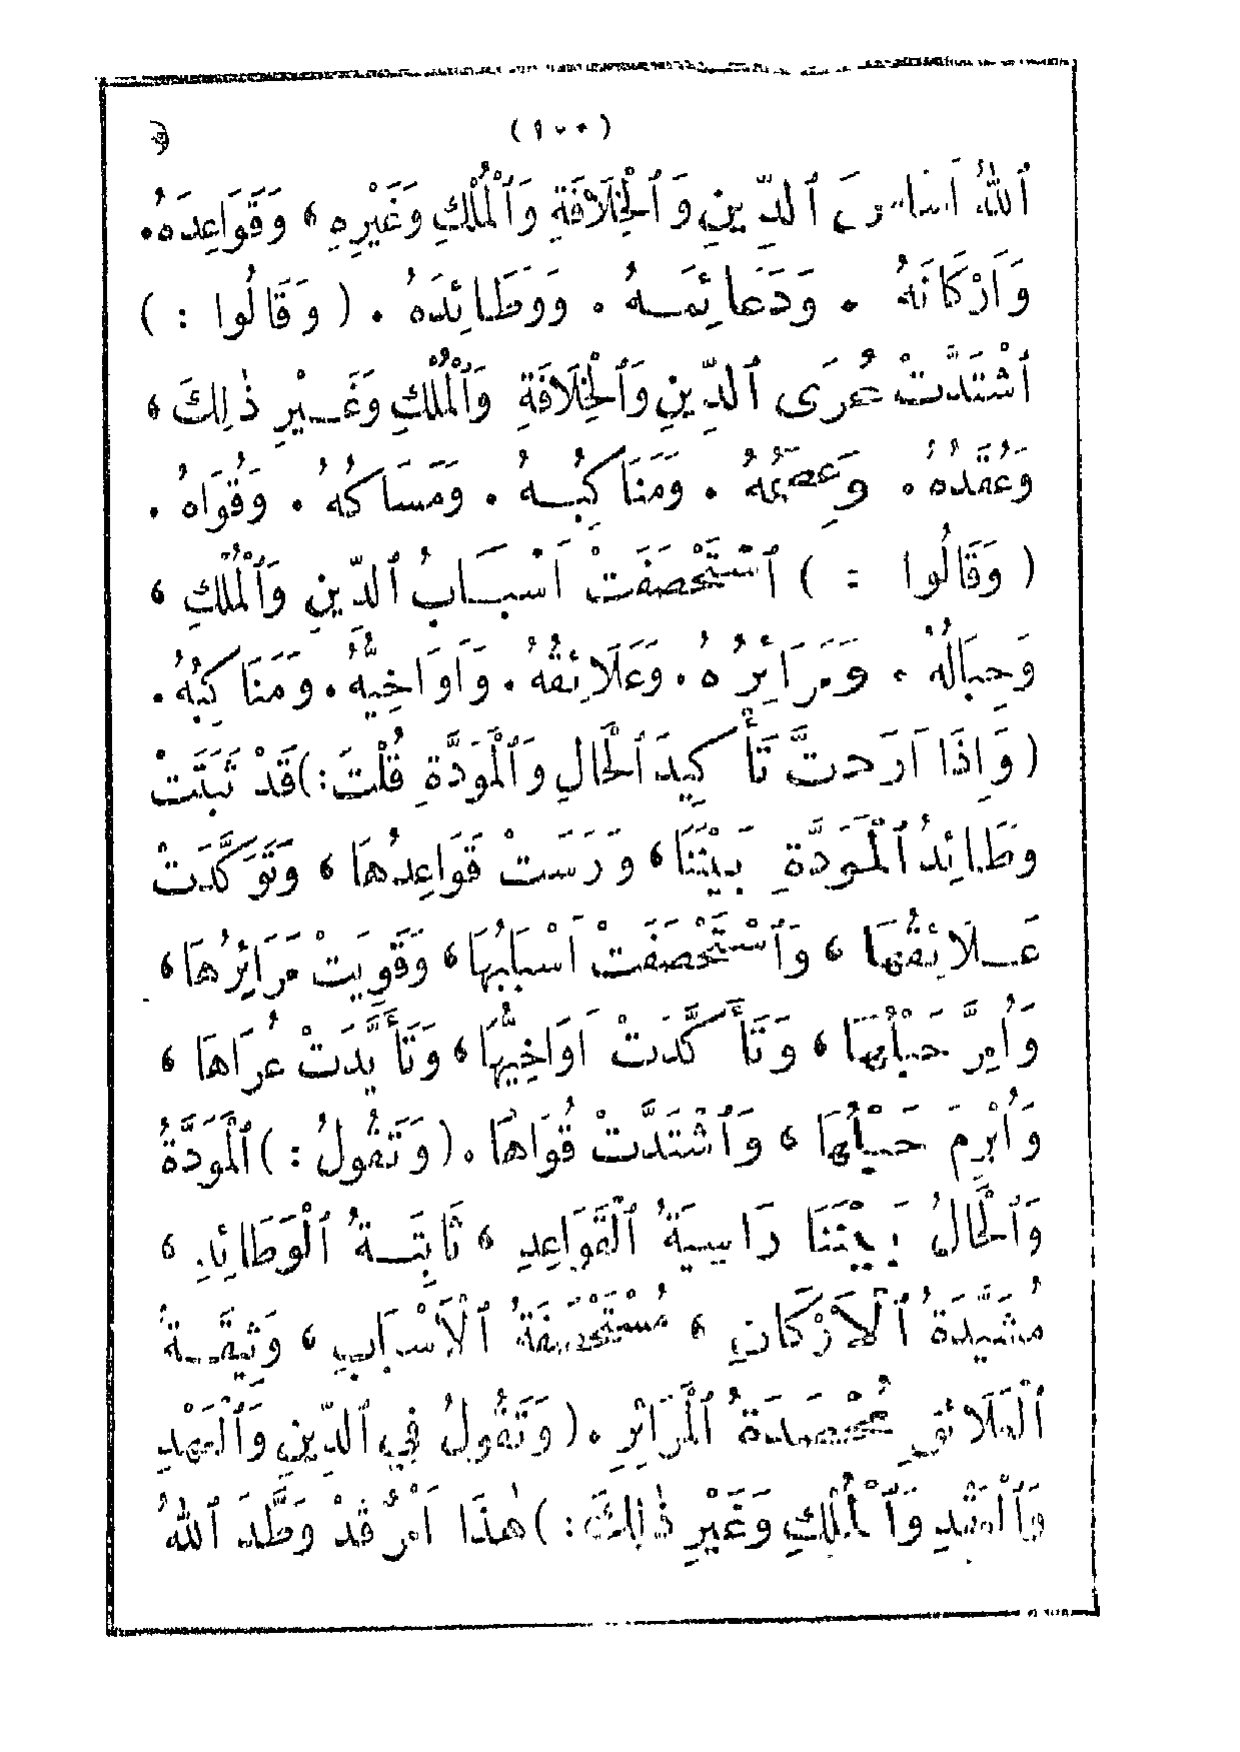 (١٠٠)
ٱللهُ اَسَاسَ ٱلدِّينِ وَٱلْخِلَافَةِ وَٱلْمُلْكِ وَغَيْرِهِ، وَقَوَاعِدَهُ.
وَاَرْكَانَهُ . وَدَعَائِمَهُ . وَوَطَائِدَهُ . (وَقَالُوا :)
ٱشْتَدَّتْ عُرَى ٱلدِّينِ وَٱلْخِلَافَةِ وَٱلْمُلْكِ وَغَيْرِ ذٰلِكَ،
وَعُقَدُهُ . وَعِصَمُهُ . وَمَنَاكِبُهُ . وَمَسَاكُهُ . وَقُوَاهُ .
(وَقَالُوا :) ٱسْتَحْصَفَتْ اَسْبَابُ ٱلدِّينِ وَٱلْمُلْكِ،
وَحِبَالُهُ . وَمَرَائِرُهُ . وَعَلَائِقُهُ . وَاَوَاخِيُّهُ . وَمَنَاكِبُهُ .
(وَاِذَا اَرَدتَّ تَأْكِيدَ ٱلْحَالِ وَٱلْمَوَدَّةِ قُلْتَ :) قَدْ ثَبَتَتْ
وَطَائِدُ ٱلْمَوَدَّةِ بَيْنَنَا، وَرَسَتْ قَوَاعِدُهَا، وَتَوَكَّدَتْ
عَلَائِقُهَا، وَٱسْتَحْصَفَتْ اَسْبَابُهَا، وَقَوِيَتْ مَرَائِرُهَا،
وَاُمِرَّ حَبْلُهَا، وَتَأَكَّدَتْ اَوَاخِيُّهَا، وَتَأَيَّدَتْ عُرَاهَا،
وَاُبْرِمَ حَبْلُهَا، وَٱشْتَدَّتْ قُوَاهَا . (وَتَقُولُ :) ٱلْمَوَدَّةُ
وَٱلْحَالُ بَيْنَنَا رَاسِيَةُ ٱلْقَوَاعِدِ، ثَابِتَةُ ٱلْوَطَائِدِ،
مُشَيَّدَةُ ٱلْاَرْكَانِ، مُسْتَحْصِفَةُ ٱلْاَسْبَابِ، وَثِيقَةُ
ٱلْعَلَائِقِ مُحْصَدَةُ ٱلْمَرَائِرِ . (وَتَقُولُ فِي ٱلدِّينِ وَٱلْعَهْدِ
وَٱلْعَقْدِ وَٱلْمُلْكِ وَغَيْرِ ذٰلِكَ :) هٰذَا اَمْرٌ قَدْ وَطَّدَ ٱللهُ